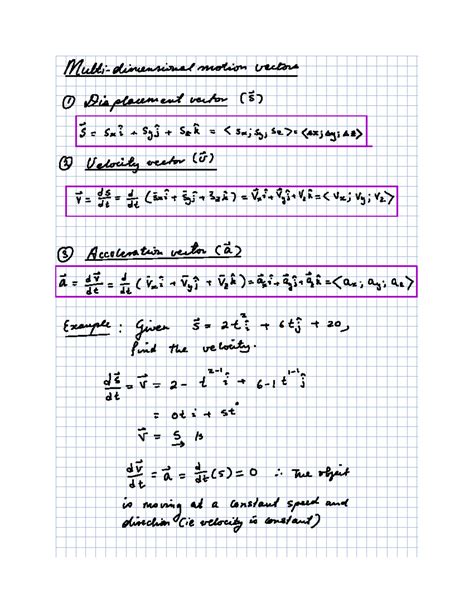 Multi-dimensional motion vectors
① Displacement vector (s⃗)
s⃗ = sₓî + s_yĵ + s_z k̂ = < sₓ; s_y; s_z > = <Δx; Δy; Δz>
② Velocity vector (v⃗)
v⃗ = ds⃗/dt = d/dt (s⃗ₓî + s⃗_yĵ + s_z k̂) = v⃗ₓî + v⃗_yĵ + v_z k̂ = < vₓ; v_y; v_z >
③ Acceleration vector (a⃗)
a⃗ = dv⃗/dt = d/dt (v⃗ₓî + v⃗_yĵ + v⃗_z k̂) = a⃗ₓî + a⃗_yĵ + a⃗_z k̂ = < aₓ; a_y; a_z >
Example : Given s⃗ = 2t²î + 6tĵ + 20,
find the velocity.
ds⃗/dt = v⃗ = 2 - t²⁻¹ î + 6-1 t¹⁻¹ ĵ
= 0t i + 5t⁰
v⃗ = 5
dv⃗/dt = a⃗ = d/dt (5) = 0 ∴ The object
is moving at a constant speed and
direction (ie velocity is constant)